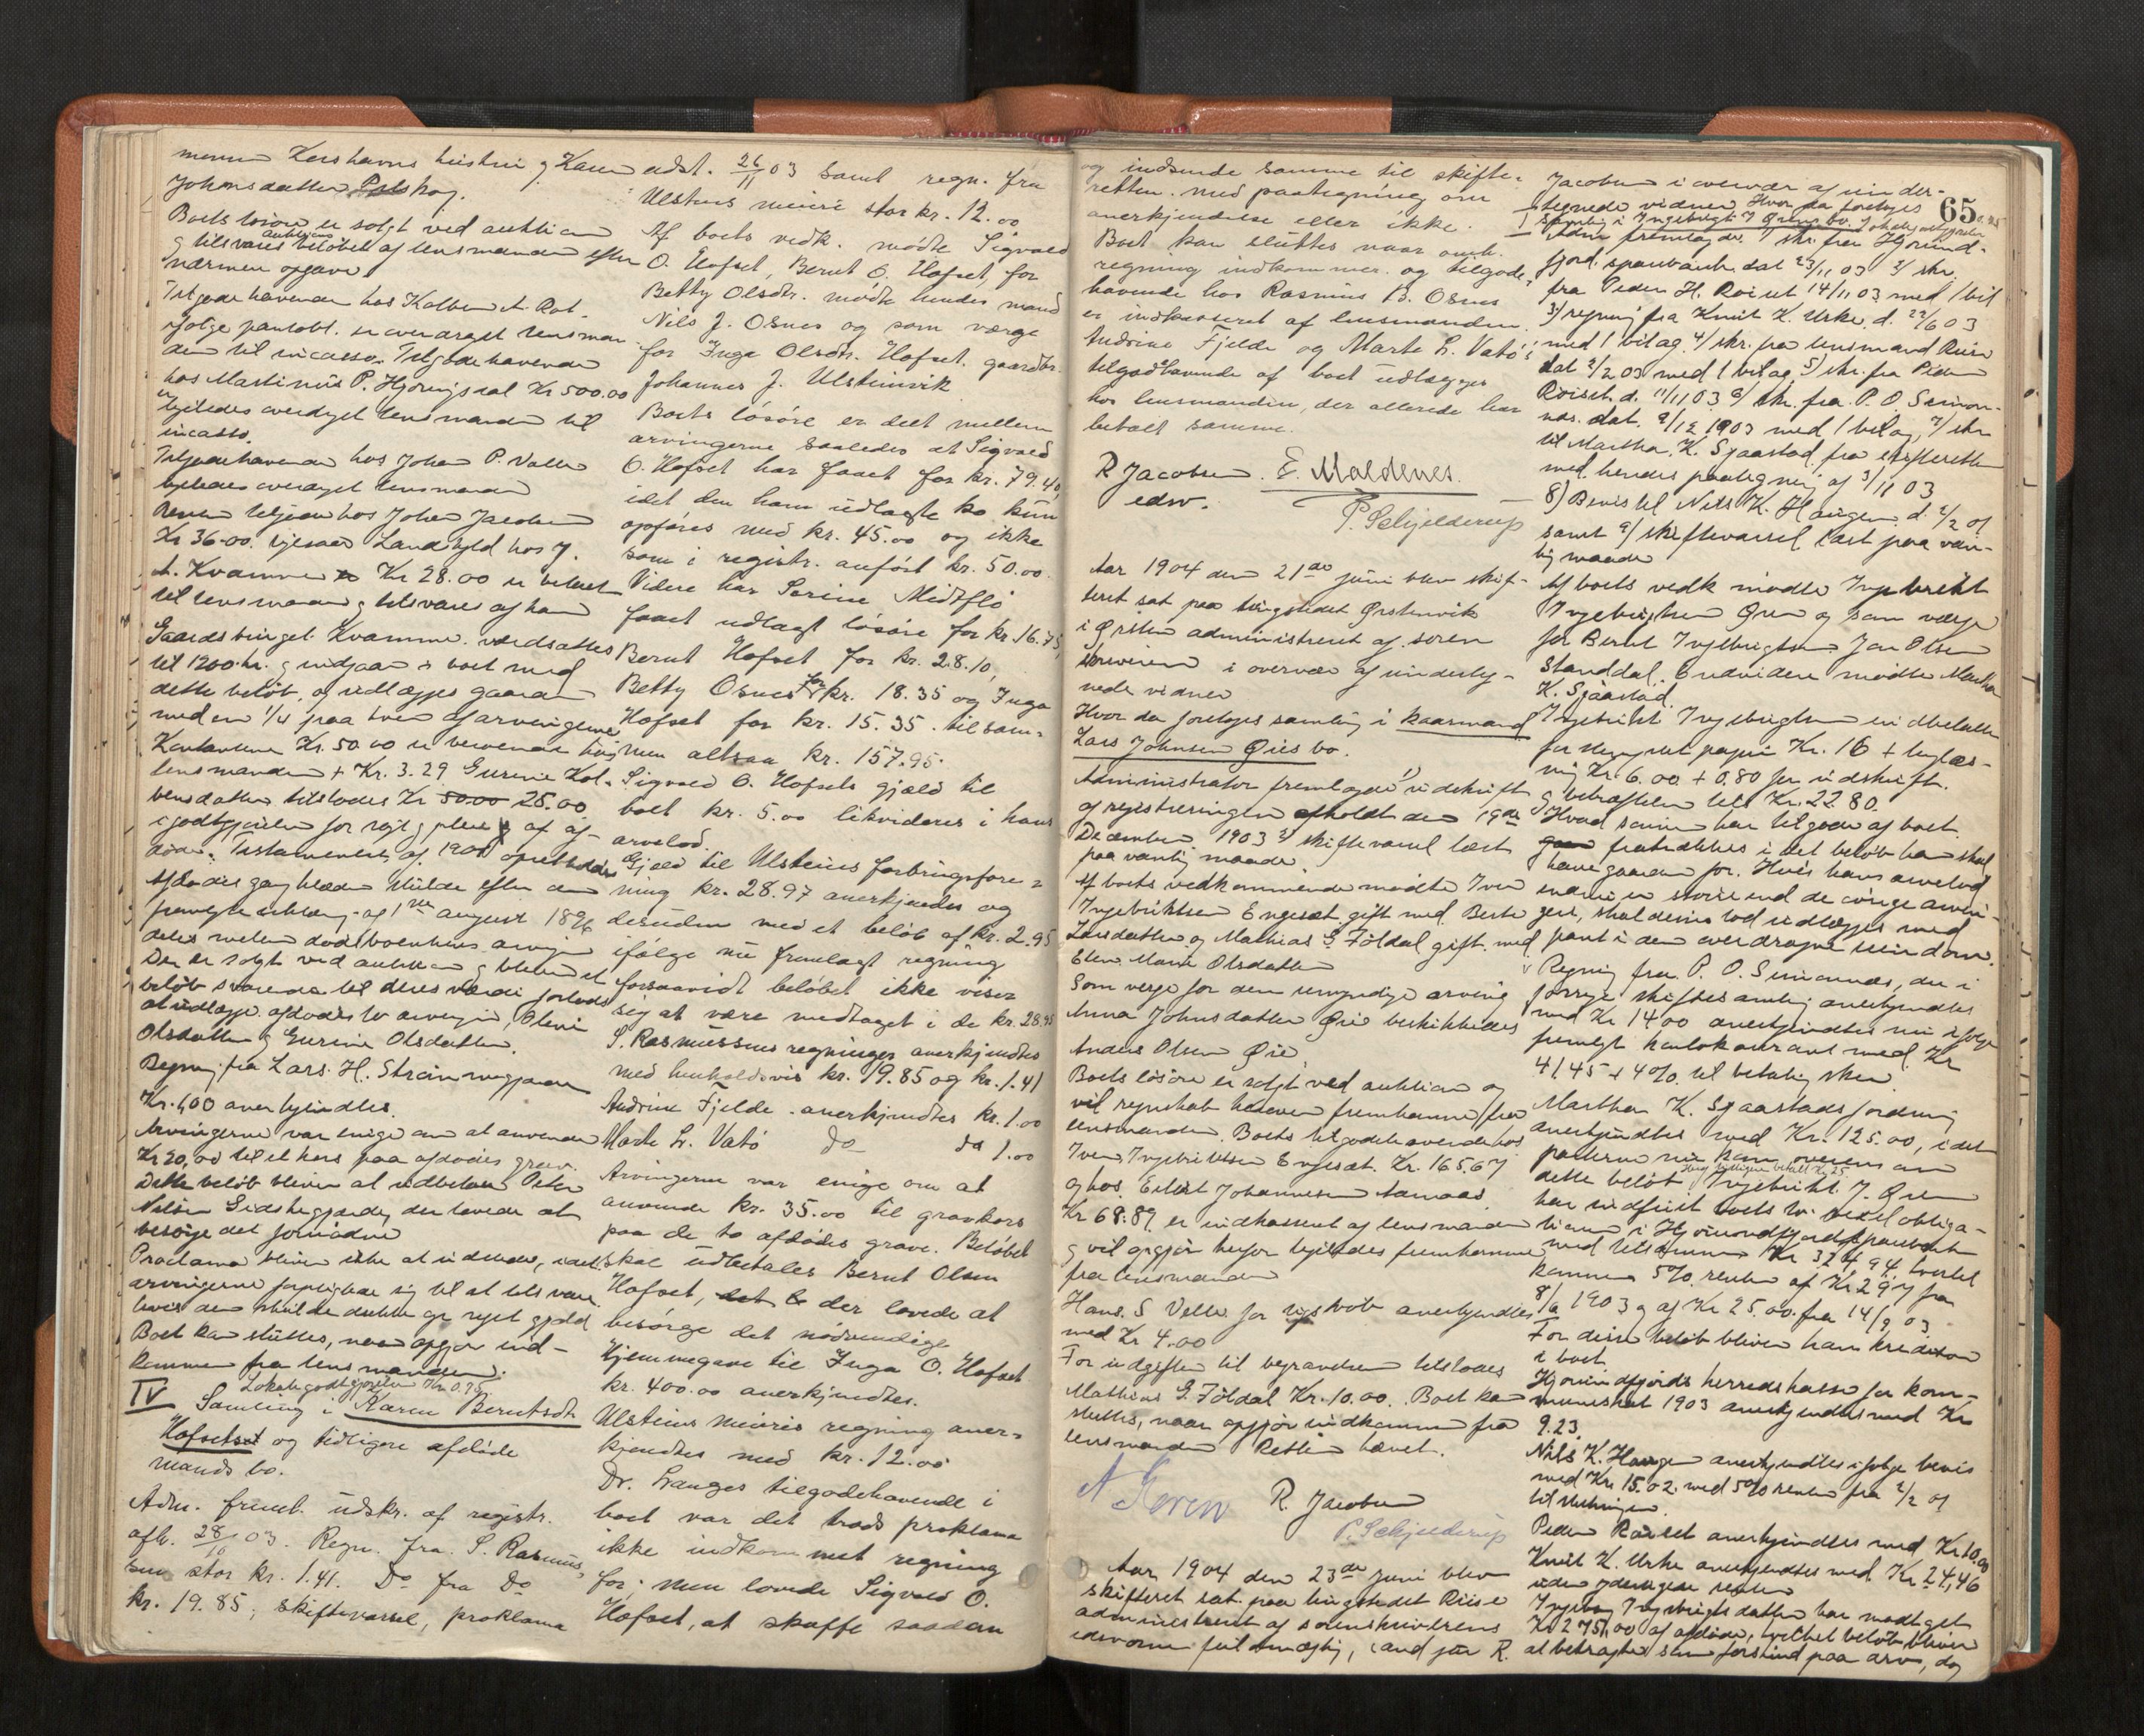 menn Kershavns hustru og Karen
Johansdatter
Boets løsøre er solgt ved auktion
auktions
og tilsvares beløbet af lensmanden efter
nærmere opgave.
Tilgodehavende hos Kolben A. Rot-
ifølge pantobl. er overdraget lensman-
den til incasso. Tilgodehavende
hos Martinus P. Hjørungdal Kr 500.00
ligeledes overdraget lensmanden til
incasso.
Tilgodehavende hos Johan P. Valle
ligeledes overdraget lensmanden
Renter tilgode hos Johan Jacobsen
Kr 36-00. ligesaa Landskyld hos J.
A. Kvamme Kr 28.00 er betalt
til lensmanden og tilsvares af ham
Gaardsbruget Kvamme værdsattes
til 1200 kr. og indgaar i boet med
dette beløb, og udlægges gaarden
med en 1/4 paa hver af arvingerne
Kontanterne Kr. 50.00 er beroende hos
lensmanden + Kr. 3.29 Gurine Kol-
bensdatter tilstodes Kr 50.00 25.00
i godtgjørelse for røgt og pleie af af-
døde. Testamentet af 1901 opretholdes
Afdødes gangklæder skulde efter den
fremlagte erklæring af 1ste august 1896
deles mellem dødsboenhens arvinger
Den er solgt ved auktion og bliver et
beløb svarende til deres værdi forlods
at udlægge afdødes to arvinger, Oline
Olsdatter og Gurine Olsdatter.
Regning fra Lars H. Strømmegjerde
Kr. 4,00 anerkjendtes.
Arvingerne var enige om at anvende
Kr 20,00 til et kors paa afdødes grav.
Dette beløb bliver at udbetale Peter
Nilsen Gidskegjerde, der lovede at
besørge det fornødne
Proclama bliver ikke at udstede, idet
arvingerne forpligter sig til at tilsvare
hvis der skulde dukke op nogen gjeld
Boet kan sluttes, naar opgjør ind-
kommer fra lensmanden.
Lokalegodtgjørelse Kr 0.75
IV Samling i Karen Berntsdtr.
Hofsetsæt og tidligere afdøde
mands bo.
Adm. freml. udskr. af registr.
afh. 28/10 03. Regn. fra S. Rasmus-
sen stor kr. 1.41. Do fra Do
kr. 19.85; skiftevarsel, proklama
udst. 26/11 03 samt regn. fra
Ulstens meieri stor kr. 12.00
Af boets vedk. mødte Sigvald
O. Hofset, Bernt O. Hofset, for
Betty Olsdtr. mødte hendes mand
Nils J. Osnes og som værge
for Inga Olsdtr. Hofset gaardbr.
Johannes J. Ulsteinvik
Boets løsøre er delt mellem
arvingerne saaledes at Sigvald
O. Hofset har faaet for kr. 79.40,
idet den ham udlagte ko kun
opføres med kr. 45.00 og ikke
som i registr. anført kr. 50.00.
Videre har Serine Midtflø
faaet udlagt løsøre for kr. 16.75,
Bernt Hofset for kr. 28.10,
Betty Osnes for kr. 18.35 og Inga
Hofset for kr. 15.35. tilsam-
men altsaa kr. 157.95.
Sigvald O. Hofsets gjæld til
boet kr. 5.00 likvideres i hans
arvelod.
Gjæld til Ulsteins forbrugsfore-
ning kr. 28.97 anerkjendes og
desuden med et beløb af kr. 2.95
ifølge nu fremlagt regning
forsaavidt beløbet ikke viser
sig at være medtaget i de kr. 28.95
S. Rasmussens regninger anerkjendtes
med henholdsvis kr. 19.85 og kr. 1.41
Andrine Fjelde anerkjendtes kr. 1.00
Marte L. Vatö do do 1.00
Arvingerne var enige om at
anvende kr. 35.00 til gravkors
paa de to afdødes grave. Beløbet
skal udbetales Bernt Olsen
Hofset, der lovede at
besørge det nødvendige
Hjemmegave til Inga O. Hofset
kr. 400.00 anerkjendtes.
Ulsteins meieris regning aner-
kjendtes med kr. 12.00
Dr. Langes tilgodehavende i
boet var det trods proklama
ikke indkommet regning
for; men lovede Sigvald O.
Hofset, at skaffe saadan
og indsende samme til skifte-
retten med paategning om
anerkjendelse eller ikke.
Boet kan sluttes naar omh.
regning indkommer og tilgode-
havende hos Rasmus B. Osnes
er indkasseret af lensmanden.
Andrine Fjelde og Marte L. Vatö's
tilgodehavende af boet udlægges
hos lensmanden, der allerede har
betalt samme.
R Jacobsen E. Maldenes.
edsv. P. Schjelderup
Aar 1904 den 21de juni blev skif-
teret sat paa tingstedet Ørstenvik
i Ørsten administreret af soren-
skriveren i overvær af underteg-
nede vidner
Hvor da foretoges samling i kaarmand
Lars Johnsen Øies bo.
Administrator fremlagde 1) udskrift
af registreringen afholdt den 19de
December 1903 2) skiftevarsel læst
paa vanlig maade.
Af boets vedkommende mødte Iver
Ingebriktsen Engeset gift med Berte
Larsdatter og Mathias G. Føldal gift med
Elen Marie Olsdatter
Som verge for den umyndige arving
Anna Johnsdatter Øie beskikkedes
Anders Olsen Øie.
Boets løsøre er solgt ved auktion og
vil regnskab herover fremkomme fra
lensmanden. Boets tilgodehavende hos
Iver Ingebriktsen Engeset. Kr. 165.67
og hos Erlist Johannesen Aamaas
Kr 68.89 er indkasseret af lensmanden
og vil opgjør herfor ligeledes fremkomme
fra lensmanden
Hans S Velle for ligskrob anerkjendtes
med Kr 4.00
For udgifter til begravelsen tilstodes
Mathias G. Føldal Kr. 10.00. Boet kan
sluttes, naar opgjør indkommer fra
lensmanden Retten hævet.
R. Jacobsen
P. Schjelderup
Aar 1904 den 23de juni blev
skifteret sat paa tingstedet Riise
administreret af sorenskriverens
edsvorne fuldmægtig, cand jur R.
65
Jacobsen i overvær af under-
tegnede vidner Hvor da foretoges
I Samling i Ingebrigt J Ørens bo. Lokalegodtgjørelse
Adm fremlagde: 1/ skr. fra Hjørund-
fjord sparebank dat 23/11 03 2/ skr.
fra Peder H. Røiset 14/11 03 med 1 bil
3/ regning fra Knut K. Urke. d. 22/6 03
med 1 bilag 4/ skr. fra lensmand Riise
dat 2/2 03 med 1 bilag, 5/ skr. fra Peder
Røiset d. 11/11 03 6/ skr. fra P. O Simon-
næs. dat. 9/12 1903 med 1 bilag, 7/ skr
til Martha K. Sjaastad fra skifteretten
med hendes paategning af 3/11 03
8) Bevis til Nils K. Haugen d. 2/2 01
samt 9/ skiftevarsel læst paa van-
lig maade
Af boets vedk mødte Ingebrikt
Ingebrigtsen Øren og som værge
for Bernt Ingebrigtsen Jon Olsen
Standal. Endvidere mødte Martha
K. Sjaastad.
Ingebrikt Ingebrigtsen er udbetalt
for stemplet papir Kr. 16 + tinglæs-
ning Kr. 6.00 + 0.80 for udskrift
og bekræftelse tils Kr. 22.80.
Hvad sønnen har tilgode af boet
fratrækkes i det beløb han skal
have gaarden for. Hvis hans arvelod
endnu er større end de øvrige arvin-
gers, skal dennes lod udlægges med
pant i den overdragne eiendom.
Regning fra P. O. Simonnæs, der i
forrige skiftesamling anerkjendtes
med Kr 14 00 anerkjendtes nu ifølge
fremlagt kontokourant med Kr
41.45 + 4% til betaling sker.
Martha K. Sjaastads fordring
anerkjendtes med Kr. 125.00, idet
parterne nu kom overens om
dette beløb Ingebrikt J. Øren
har indfriet boets to vexelobliga-
tioner i Hjørundfjord sparebank
med tilsammen Kr 324 94, hvortil
kommer 5% renter af Kr 297 fra
8/9 1903 og af Kr 25.00 fra 14/9 03
For disse beløb bliver han kreditor
i boet
Hjørundfjords herredskasse for kom-
muneskat 1903 anerkjendtes med Kr
9.23.
Nils K. Haugen anerkjendtes ifølge bevis
med Kr 15.02 med 5% renter fra 2/2 01
til slutningen
Peder Røiset anerkjendtes med Kr 10,00
Knut K. Urke anerkjendtes med Kr 24,46
uden yderligere renter
Ingeborg Ingebrigtsdatter har modtaget
Kr 275,00 af afdøde, hvilket beløb bliver
at betragte som forskud paa arv, dog